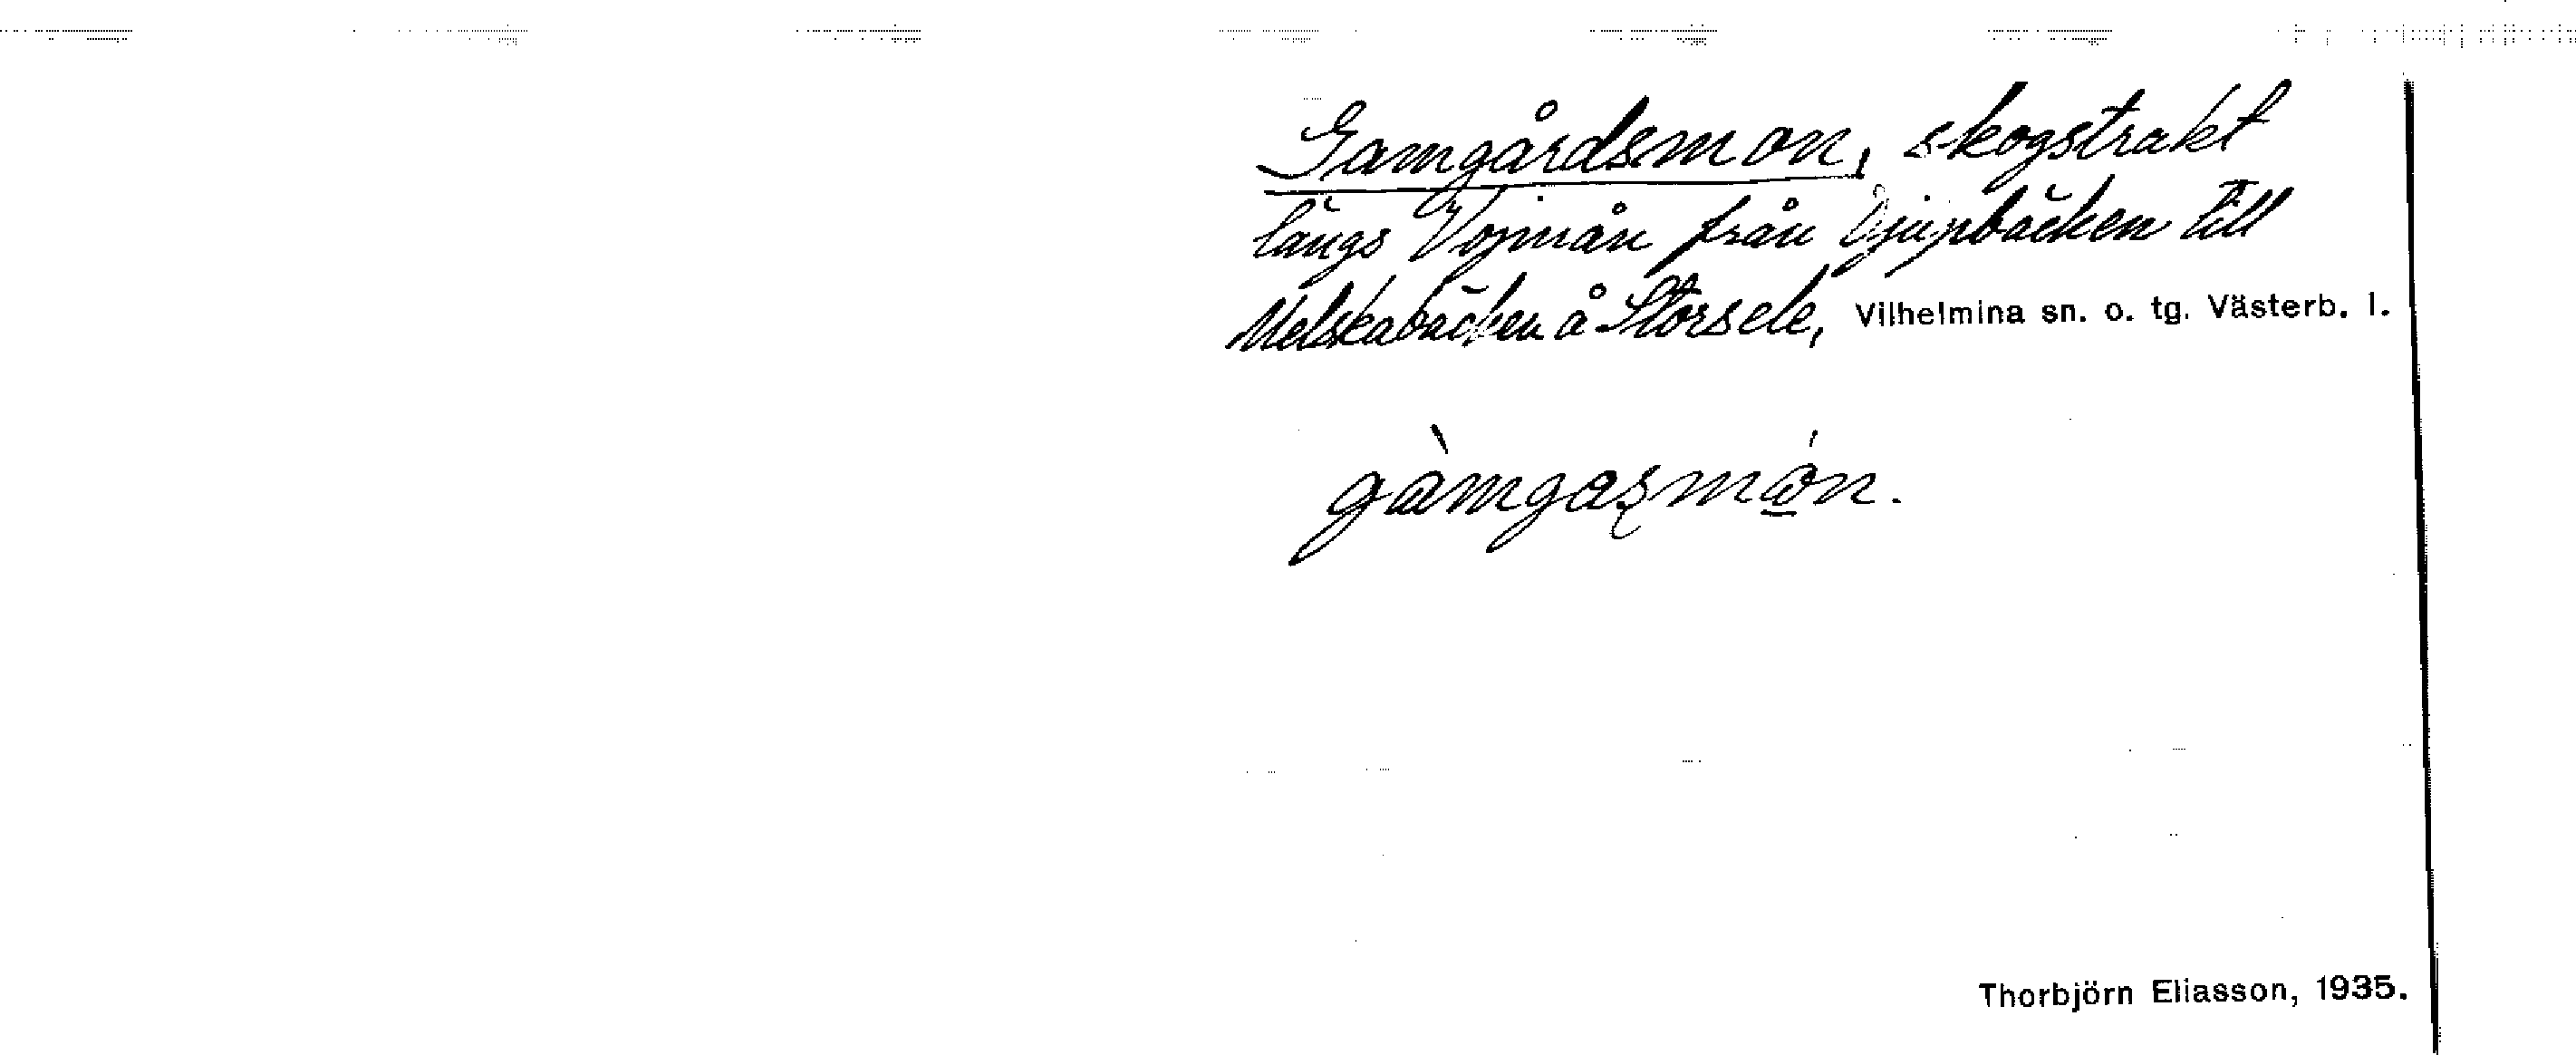 Gamgårdsmon, skogstrakt
längs Vojmån från Djupbäcken till
Melskabäcken å Storsele, Vilhelmina sn. o. tg. Västerb. l.
gàmgasmón.
Thorbjörn Eliasson, 1935.